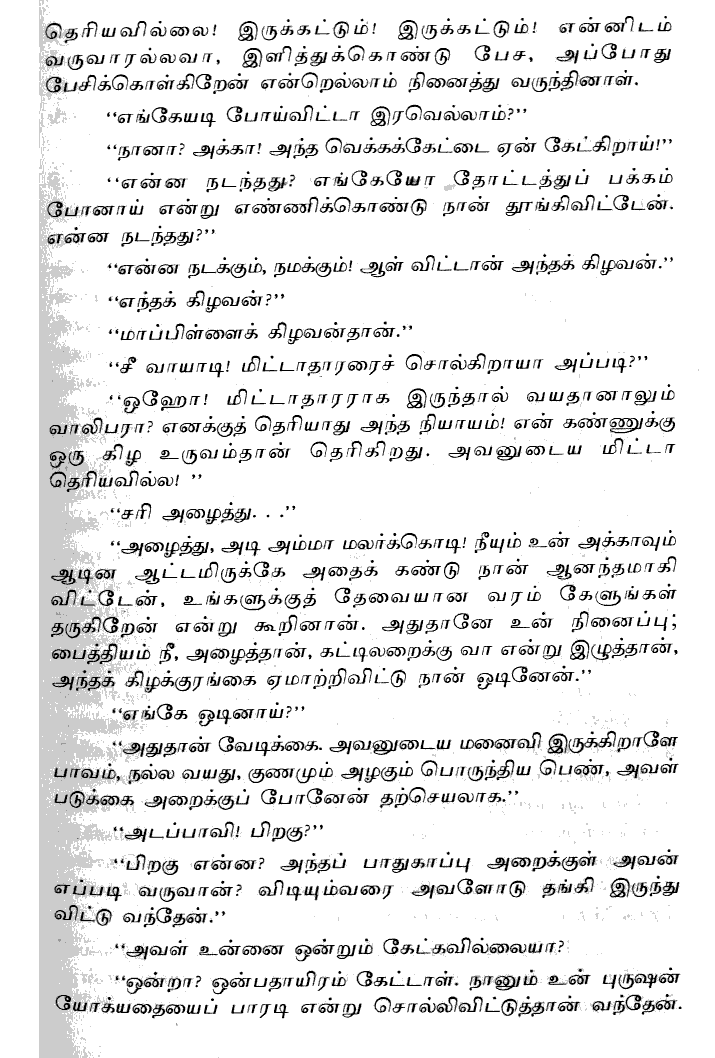 தெரியவில்லை! இருக்கட்டும்! இருக்கட்டும்! என்னிடம்
வருவாரல்லவா, இளித்துக்கொண்டு பேச, அப்போது
பேசிக்கொள்கிறேன் என்றெல்லாம் நினைத்து வருந்தினாள்.
‘‘எங்கேயடி போய்விட்டா இரவெல்லாம்?’’
‘‘நானா? அக்கா! அந்த வெக்கக்கேட்டை ஏன் கேட்கிறாய்!’’
‘‘என்ன நடந்தது? எங்கேயோ தோட்டத்துப் பக்கம்
போனாய் என்று எண்ணிக்கொண்டு நான் தூங்கிவிட்டேன்.
என்ன நடந்தது?’’
‘‘என்ன நடக்கும், நமக்கும்! ஆள் விட்டான் அந்தக் கிழவன்.’’
‘‘எந்தக் கிழவன்?’’
‘‘மாப்பிள்ளைக் கிழவன்தான்.’’
‘‘சீ வாயாடி! மிட்டாதாரரைச் சொல்கிறாயா அப்படி?’’
‘‘ஓஹோ! மிட்டாதாரராக இருந்தால் வயதானாலும்
வாலிபரா? எனக்குத் தெரியாது அந்த நியாயம்! என் கண்ணுக்கு
ஒரு கிழ உருவம்தான் தெரிகிறது. அவனுடைய மிட்டா
தெரியவில்ல! ’’
‘‘சரி அழைத்து. . .’’
‘‘அழைத்து, அடி அம்மா மலர்க்கொடி! நீயும் உன் அக்காவும்
ஆடின ஆட்டமிருக்கே அதைக் கண்டு நான் ஆனந்தமாகி
விட்டேன், உங்களுக்குத் தேவையான வரம் கேளுங்கள்
தருகிறேன் என்று கூறினான். அதுதானே உன் நினைப்பு;
பைத்தியம் நீ, அழைத்தான், கட்டிலறைக்கு வா என்று இழுத்தான்,
அந்தக் கிழக்குரங்கை ஏமாற்றிவிட்டு நான் ஓடினேன்.’’
‘‘எங்கே ஓடினாய்?’’
‘‘அதுதான் வேடிக்கை. அவனுடைய மனைவி இருக்கிறாளே
பாவம், நல்ல வயது, குணமும் அழகும் பொருந்திய பெண், அவள்
படுக்கை அறைக்குப் போனேன் தற்செயலாக.’’
‘‘அடப்பாவி! பிறகு?’’
‘‘பிறகு என்ன? அந்தப் பாதுகாப்பு அறைக்குள் அவன்
எப்படி வருவான்? விடியும்வரை அவளோடு தங்கி இருந்து
விட்டு வந்தேன்.’’
‘‘அவள் உன்னை ஒன்றும் கேட்கவில்லையா?
‘‘ஒன்றா? ஒன்பதாயிரம் கேட்டாள். நானும் உன் புருஷன்
யோக்யதையைப் பாரடி என்று சொல்லிவிட்டுத்தான் வந்தேன்.